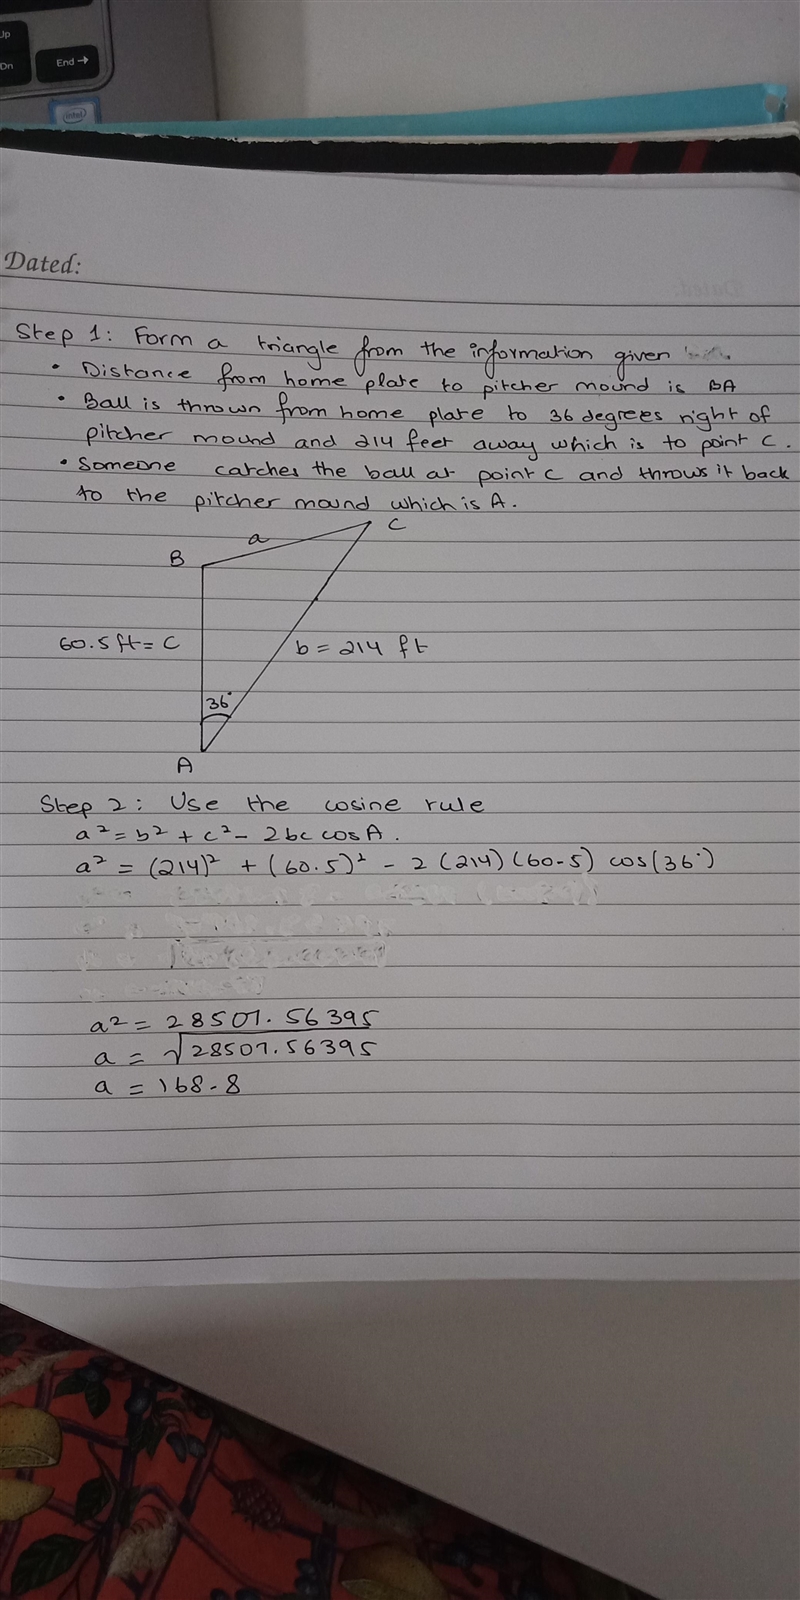 Up
Dn
End →
intel
Dated:
Step 1: Form a triangle from the information given
• Distance from home plate to pitcher mound is BA
• Ball is thrown from home plate to 36 degrees right of
pitcher mound and 214 feet away which is to point C.
• Someone catches the ball at point C and throws it back
to the pitcher mound which is A.
C
a
B
60.5 ft = C
b = 214 ft
36°
A
Step 2: Use the cosine rule
a² = b² + c² - 2bc cos A.
a² = (214)² + (60.5)² - 2 (214) (60-5) cos(36°)
a² = 28507.56395
a = √28507.56395
a = 168-8